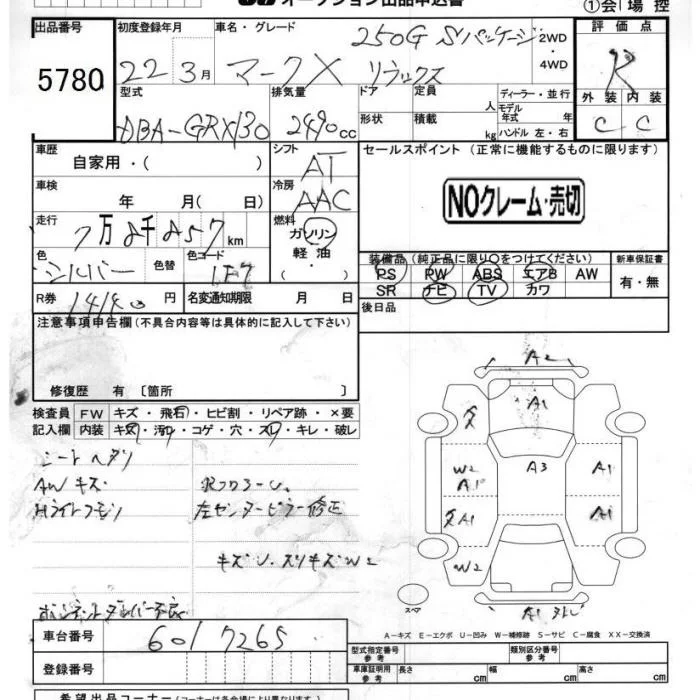 オークション出品申込書
①会場控
出品番号 初度登録年月 車名・グレード 評価点
5780
22年3月 マークX 250G Sパッケージ リラックス 2WD・4WD
R
外装 内装
C C
型式 排気量 ドア 定員 人 ディーラー・並行
DBA-GRX130 2490cc 形状 積載 kg モデル年式 年 ハンドル 左・右
車歴 シフト セールスポイント (正常に機能するものに限ります)
自家用・( ) AT
車検 冷房
年 月( 日) AAC
NOクレーム・売切
走行 燃料
7万 8千 857 km ガソリン 軽油
色 色替 色コード
シルバー 1F7
装備品(純正品に限り○をつけてください) 新車保証書
PS PW ABS エアB AW 有・無
SR ナビ TV カワ
R券 円 名変通知期限 月 日
後日品
注意事項申告欄(不具合内容等は具体的に記入して下さい)
修復歴 有〔箇所 〕
検査員 FW キズ・飛石・ヒビ割・リペア跡・×要
記入欄 内装 キズ・汚れ・コゲ・穴・スレ・キレ・破レ
シートヘタリ
AWキズ
Hライトクモリ
左センターピラー修正
キズU.スリキズW2
A2
A1
W2 A3 A1
A1
A1 A1
W2
スペア
A1
A-キズ E-エクボ U-凹み W-補修跡 S-サビ C-腐食 XX-交換済
車台番号 6017265
登録番号
型式指定番号 参考 類別区分番号 参考
車庫証明用 参考 長さ cm 幅 cm 高さ cm
希望出品コーナー(コーナーは各会場により異なります)